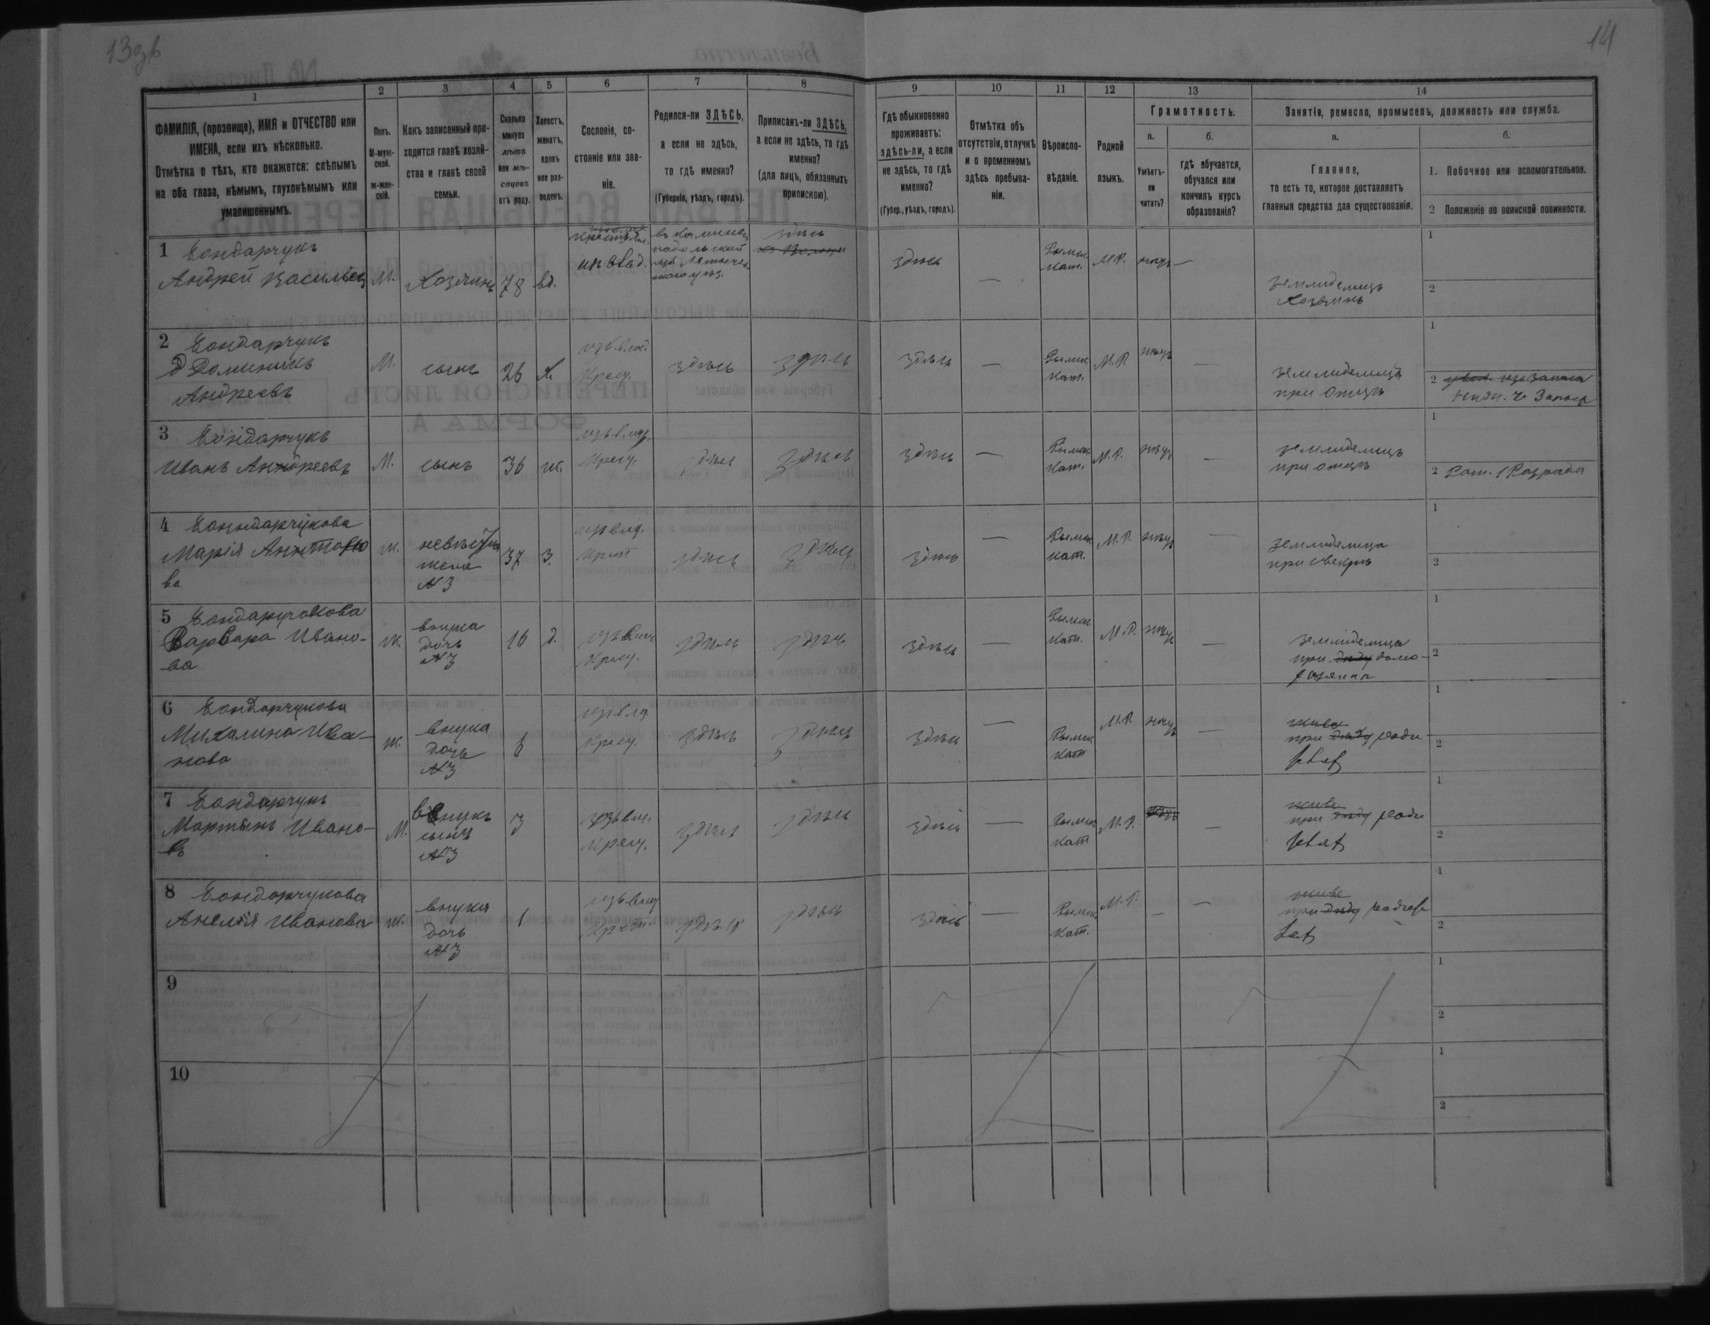 13зв
14
1
2
3
4
5
6
7
8
9
10
11
12
13
14
ФАМИЛІЯ, (прозвище), ИМЯ и ОТЧЕСТВО или
ИМЕНА, если ихъ нѣсколько.
Отмѣтка о тѣхъ, кто окажется: слѣпымъ
на оба глаза, нѣмымъ, глухонѣмымъ или
умалишеннымъ.
Полъ.
М-муж-
ской.
ж-жен-
скій.
Какъ записанный при-
ходится главѣ хозяй-
ства и главѣ своей
семьи.
Сколько
минуло
лѣтъ
или мѣ-
сяцевъ
отъ роду.
Холостъ,
женатъ,
вдовъ
или раз-
веденъ.
Сословіе, со-
стояніе или зва-
ніе.
Родился-ли ЗДѢСЬ,
а если не здѣсь,
то гдѣ именно?
(Губернія, уѣздъ, городъ).
Приписанъ-ли ЗДѢСЬ,
а если не здѣсь, то гдѣ
именно?
(для лицъ, обязанныхъ
припискою).
Гдѣ обыкновенно
проживаетъ:
здѣсь-ли, а если
не здѣсь, то гдѣ
именно?
(Губер., уѣздъ, городъ).
Отмѣтка объ
отсутствіи, отлучкѣ
и о временномъ
здѣсь пребыва-
ніи.
Вѣроиспо-
вѣданіе.
Родной
языкъ.
Грамотность.
а.
Умѣетъ-
ли
читать?
б.
гдѣ обучается,
обучался или
кончилъ курсъ
образованія?
Занятіе, ремесло, промыселъ, должность или служба.
а.
Главное,
то есть то, которое доставляетъ
главныя средства для существованія.
б.
1. Побочное или вспомогательное.
2 Положеніе по воинской повинности.
1 Бондарчукъ
Андрей Васильевъ
М.
Хозяинъ
78
вд.
здѣсь
здѣсь
—
Римск.
Кат.
М.Р.
нѣтъ
—
земледелецъ
Хозяинъ
1
2
2 Бондарчукъ
Доминикъ
Андреевъ
М.
сынъ
26
Х.
изъ влад.
Крест.
здѣсь
здѣсь
здѣсь
—
Римск.
Кат.
М.Р.
нѣтъ
—
земледелецъ
при отцѣ
1
2
3 Бондарчукъ
Иванъ Андреевъ
М.
сынъ
36
ж.
изъ влад.
Крест.
здѣсь
здѣсь
здѣсь
—
Римск.
Кат.
М.Р.
нѣтъ
земледелецъ
при отцѣ
1
2 Рат. 1 Разряда
4 Бондарчукова
Марія Антоно
ва
ж.
невѣстка
жена
№3
37
з.
изъ влд.
Крест
здѣсь
здѣсь
здѣсь
—
Римск
Кат.
М.Р.
нѣтъ
—
земледелица
при свекрѣ
1
2
5 Бондарчукова
Варвара Ивано-
ва
ж.
внучка
дочь
№3
16
д.
изъ влад.
Крест.
здѣсь
здѣсь
здѣсь
—
Римск
Кат.
М.Р.
нѣтъ
—
земледелица
1
2
6 Бондарчукова
Михалина Ива-
нова
ж.
внука
дочь
№3
изъ влд
Крест.
здѣсь
здѣсь
здѣсь
—
Римск
Кат
М.Р.
нѣтъ
—
1
2
7 Бондарчукъ
Мартинъ Ивано-
въ
М.
внукъ
сынъ
№3
3
изъ влд.
Крест.
здѣсь
здѣсь
здѣсь
—
Римск
Кат
М.Р.
—
1
2
8 Бондарчукова
Анелія Иванова
ж.
внука
дочь
№3
1
изъ влад
Крест.
здѣсь
здѣсь
здѣсь
—
Римск
Кат.
М.Р.
—
—
1
2
9
1
2
10
1
2